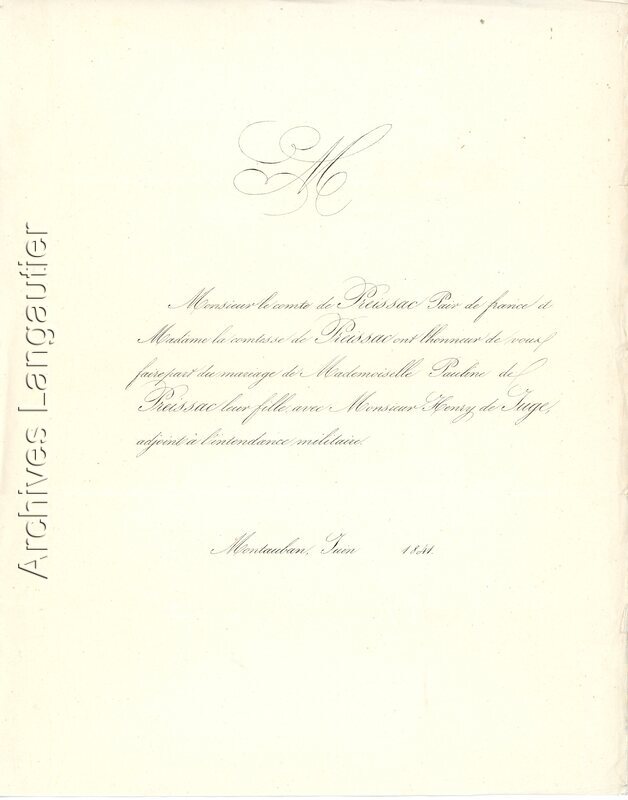 M
Monsieur le comte de Preissac Pair de france et
Madame la comtesse de Preissac ont l'honneur de vous
faire part du mariage de Mademoiselle Pauline de
Preissac leur fille, avec Monsieur Henry de Juge,
adjoint à l'intendance militaire.
Montauban, Juin 1841.
Archives Langautier